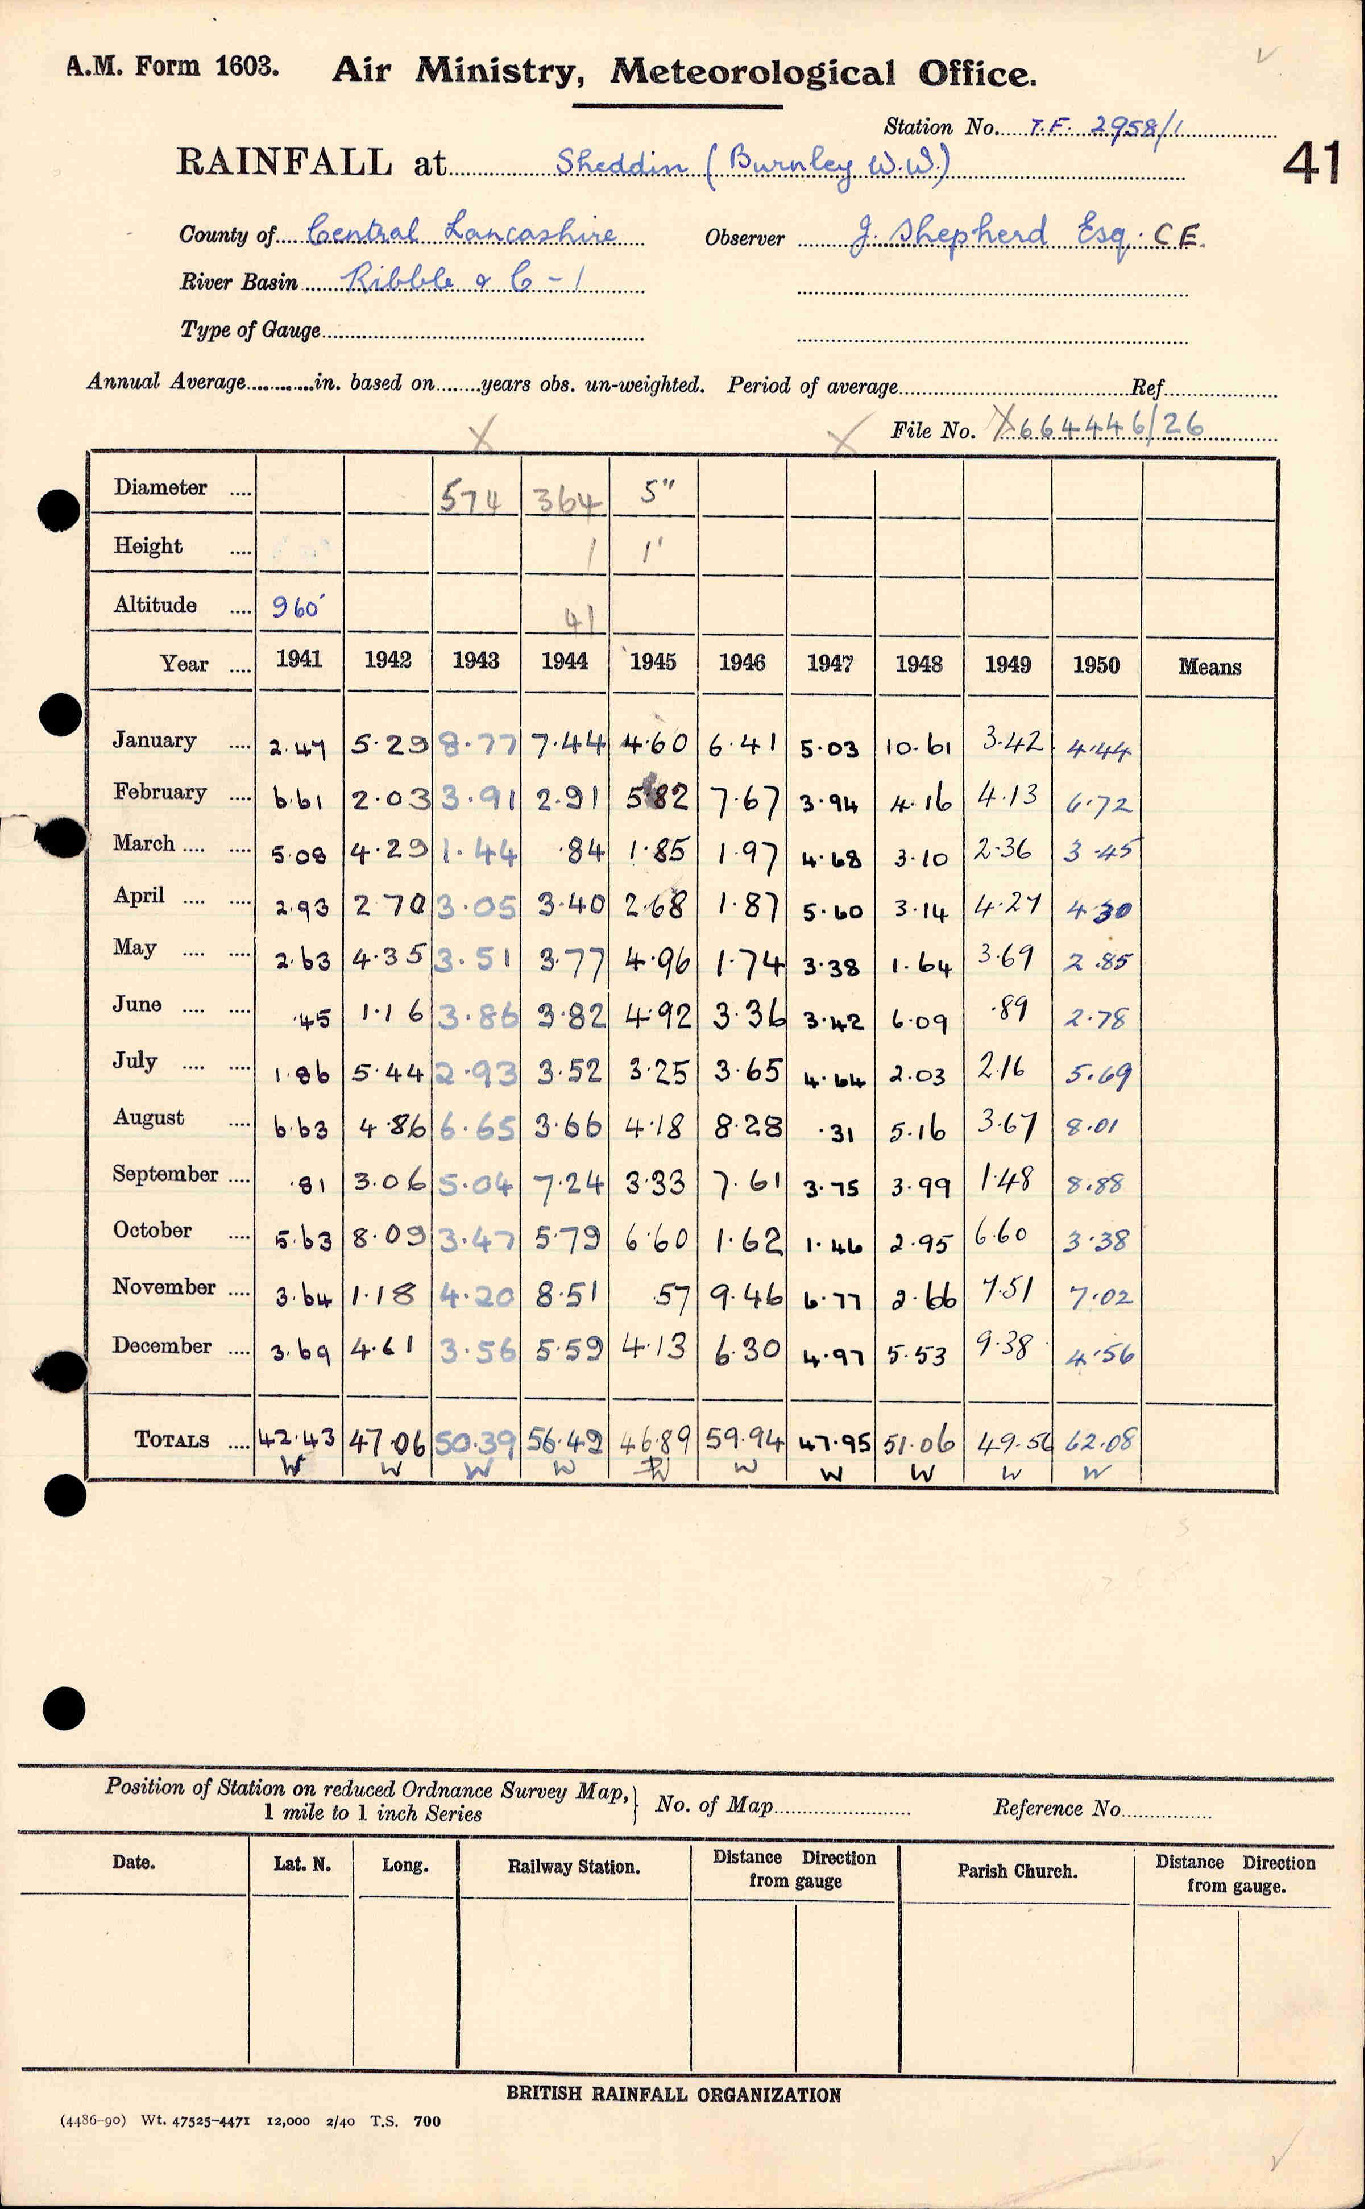 A.M. Form 1603. Air Ministry, Meteorological Office.
Station No. T.F. 2958/1
41
RAINFALL at Sheddin (Burnley W.W.)
County of Central Lancashire Observer J. Shepherd Esq. C E.
River Basin Ribble & C - 1
Type of Gauge
Annual Average in. based on years obs. un-weighted. Period of average Ref
File No. X664446/26
X X
Diameter 574 364 5"
Height 1 1'
Altitude 960' 41
Year 1941 1942 1943 1944 1945 1946 1947 1948 1949 1950 Means
January 2.47 5.29 8.77 7.44 4.60 6.41 5.03 10.61 3.42 4.44
February 6.61 2.03 3.91 2.91 5.82 7.67 3.94 4.16 4.13 6.72
March 5.08 4.29 1.44 .84 1.85 1.97 4.68 3.10 2.36 3.45
April 2.93 2.70 3.05 3.40 2.68 1.87 5.60 3.14 4.27 4.30
May 2.63 4.35 3.51 3.77 4.96 1.74 3.38 1.64 3.69 2.85
June .45 1.16 3.86 3.82 4.92 3.36 3.42 6.09 .89 2.78
July 1.86 5.44 2.93 3.52 3.25 3.65 4.64 2.03 2.16 5.69
August 6.63 4.86 6.65 3.66 4.18 8.28 .31 5.16 3.67 8.01
September .81 3.06 5.04 7.24 3.33 7.61 3.75 3.99 1.48 8.88
October 5.63 8.09 3.47 5.79 6.60 1.62 1.46 2.95 6.60 3.38
November 3.64 1.18 4.20 8.51 .57 9.46 6.77 2.66 7.51 7.02
December 3.69 4.61 3.56 5.59 4.13 6.30 4.97 5.53 9.38 4.56
TOTALS 42.43 47.06 50.39 56.49 46.89 59.94 47.95 51.06 49.56 62.08
W W W W W W W W W W
Position of Station on reduced Ordnance Survey Map,
1 mile to 1 inch Series
No. of Map Reference No.
Date. Lat. N. Long. Railway Station. Distance Direction from gauge Parish Church. Distance Direction from gauge.
BRITISH RAINFALL ORGANIZATION
(4486-90) Wt. 47525-4471 12,000 2/40 T.S. 700